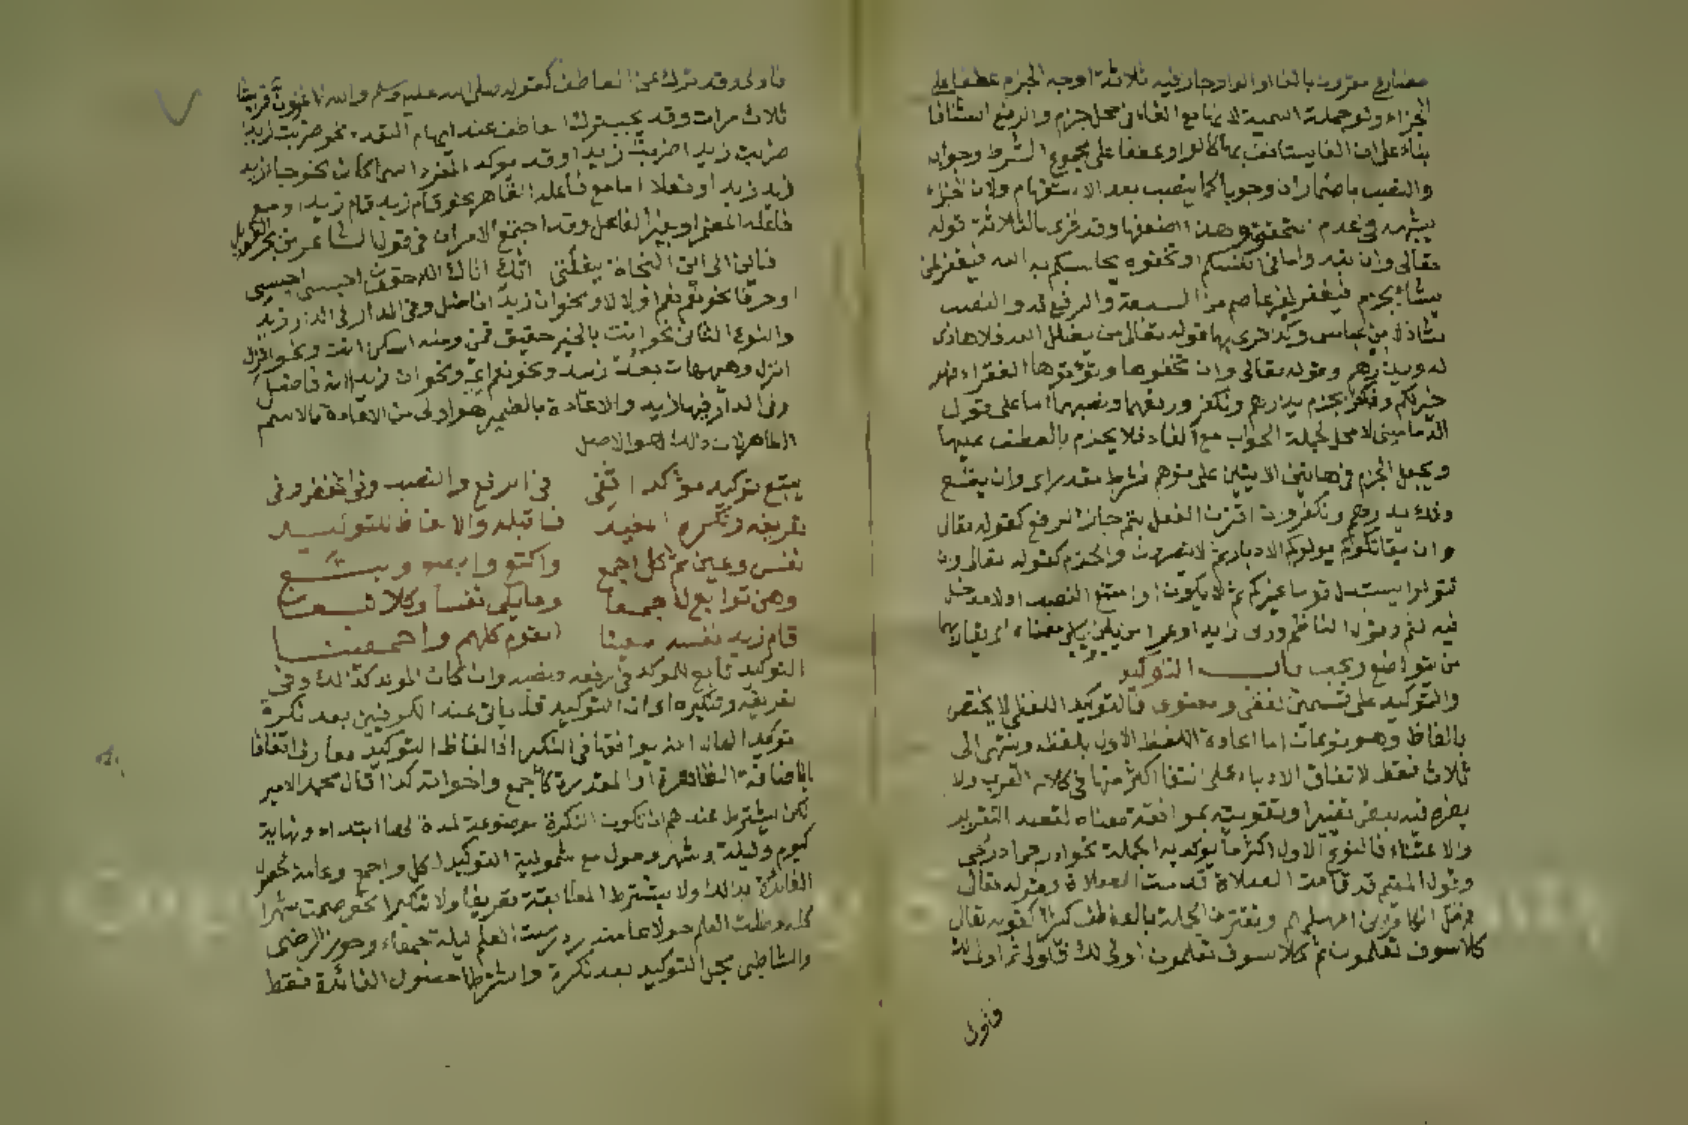 مضارع مقرون بالفا او الواو جاز فيه ثلاثة اوجه الجزم عطفا على
الجزاء ولو جملة اسمية لانها مع الفاء في محل جزم والرفع استئنافا
بناء على ان الفا يستانف بها كالواو او عطفا على مجموع الشرط وجوابه
والنصب باضمار ان وجوبا كما ينصب بعد الاستفهام ولان الجزاء
يشبهه في عدم التحقق وهذا اضعفها وقد قرى بالثلاثة قوله
تعالى وان تبدوا ما في انفسكم او تخفوه يحاسبكم به الله فيغفر لمن
يشاء بجزم فيغفر لغير عاصم من السبعة والرفع له والنصب
شاذ لابن عباس وكذا قرى بها قوله تعالى من يضلل الله فلا هادي
له ويذرهم وقوله تعالى وان تخفوها وتؤتوها الفقراء فهو
خير لكم ونكفر بجزم يذرهم ونكفر ورفعهما ونصبهما اما على قول
الدماميني لا محل لجملة الجواب مع الفاء فلا يجزم بالعطف عليها
ويجعل الجزم في هاتين الايتين على توهم شرط مقدر اى وان يقع
ذلك يذرهم ونكفر وان اقترن الفعل بثم جاز الرفع كقوله تعالى
وان يقاتلوكم يولوكم الادبار ثم لا ينصرون والجزم كقوله تعالى وان
تتولوا يستبدل قوما غيركم ثم لا يكونوا وامتنع النصب اولا مدخل
فيه لثم وقول الناظم
من تواضع رجب باب التوكيد
والتوكيد على قسمين لفظى ومعنوى فالتوكيد اللفظى لا يختص
بالفاظ وهو نوعان اما اعادة اللفظ الاول بلفظه وينتهى الى
ثلاث فقط لاتفاق الادباء على انتفا اكثر منها في كلام العرب ولا
يضر فيه بعض تغيير او تقويته بموافقة معناه لقصد التقرير
والاعتناء فالنوع الاول اكثر ما يوكد به الجملة نحو ادرجى ادرجى
وقول المقيم قد قامت الصلاة قد قامت الصلاة وقوله تعالى
فمهل الكافرين امهلهم وتقترن الجملة بالعاطف كثيرا كقوله تعالى
كلا سوف تعلمون ثم كلا سوف تعلمون اولى لك فاولى ثم اولى لك
فاولى
فاولى وقد تترك عن العاطف كقوله صلى الله عليه وسلم والله لاغزون قريشا
ثلاث مرات وقد يجب ترك العاطف عند ايهام التعدد نحو ضربت زيدا
ضربت زيدا ضربت زيدا وقد يوكد المفرد اسما كان نحو جا زيد
زيد زيد او فعلا اما مع فاعله الظاهر نحو قام زيد قام زيد او مع
فاعله المضمر او بغير الفاعل وقد اجتمع الامران في قول الشاعر من بحر الطويل
فاين الى اين النجاة ببغلتى اتاك اتاك اللاحقون احبس احبس
او حرفا نحو نعم نعم او لا لا ونحو ان زيدا ان زيدا فاضل وفى الدار فى الدار زيد
والنوع الثانى نحو انت بالخير حقيق قمن ومنه اسكن انت ونحو انزل
انزل وهيهات بعد زيد ونحو نعم اى ونحو ان زيدا انه فاضل
وفى الدار فيها زيد والاعادة بالضمير هو اولى من الاعادة بالاسم
الظاهر لان ذلك هو الاصل
يتبع توكيد مؤكدا قفى في الرفع والنصب وفى الخفض وفى
تعريفه وتنكيره المفيد فما قبله والالفاظ للتوكيد
نفس وعين ثم كل اجمع واكتع وابصع ويتبع
وهن توابع لاجمعا وما يلى نفسا وكلا تبعا
قام زيد نفسه معينا القوم كلهم واجمعينا
التوكيد تابع للموكد في رفعه ونصبه وان كان الموكد كذالك وفى
تعريفه وتنكيره اى ان التوكيد قد ياتى عند الكوفيين بعد نكرة
توكيدا لها انه يوافقها في التنكير اذ الفاظ التوكيد معارف اتفاقا
بالاضافة الظاهرة او المقدرة كاجمع واخواته كذا قال محمد الامير
لكن يشترط عندهم ان تكون النكرة موضوعة لمدة لها ابتداء ونهاية
كيوم وليلة وشهر وحول مع شمولية التوكيد لكل واجمع وعامة لحصول
الفائدة بذلك ولا يشترط المطابقة تعريفا ولا تنكيرا نحو صمت شهرا
كله وطلبت العلم حولا عامته ودرست العلم ليلة جمعاء وجوز الرضى
والشاطبى مجئ التوكيد بعد نكرة واشترطا حصول الفائدة فقط